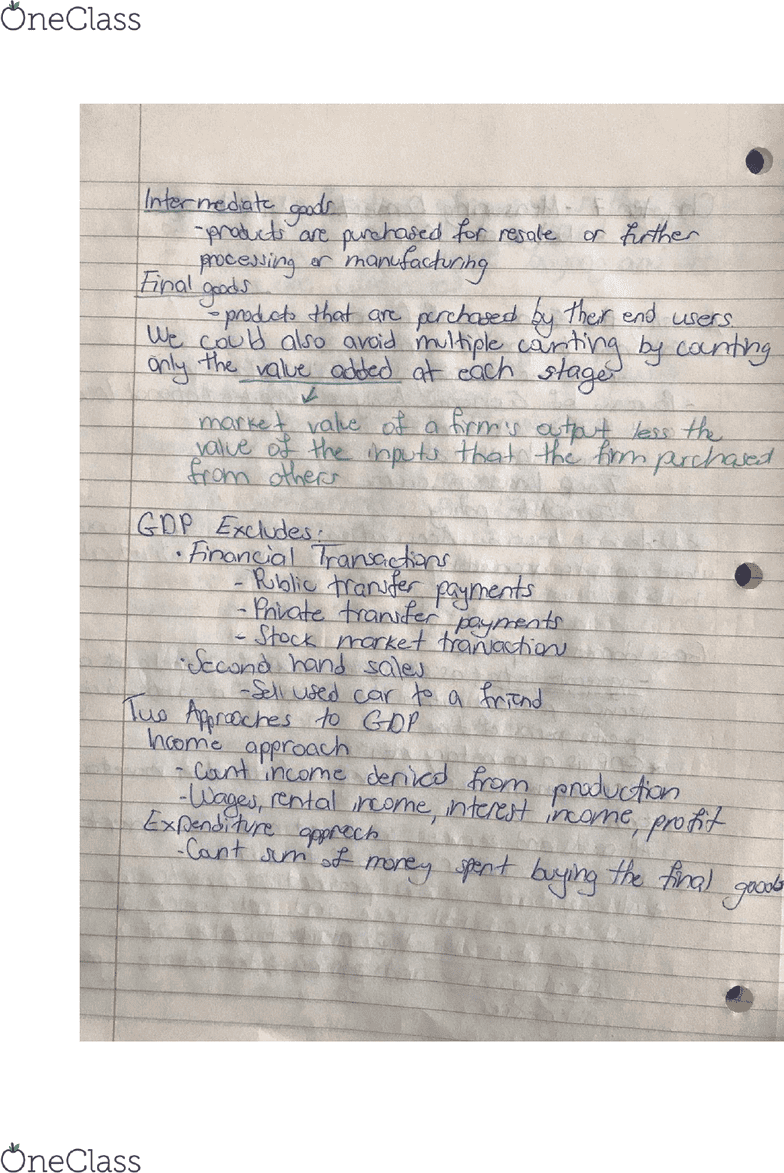 OneClass
Intermediate goods
- products are purchased for resale or further
processing or manufacturing
Final goods
- products that are purchased by their end users.
We could also avoid multiple counting by counting
only the value added at each stage
market value of a firm's output less the
value of the inputs that the firm purchased
from others
GDP Excludes:
• Financial Transactions
- Public transfer payments
- Private transfer payments
- Stock market transaction
• Second hand sales
- Sell used car to a friend
Two Approaches to GDP
Income approach
- Count income derived from production
- Wages, rental income, interest income, profit
Expenditure approach
- Count sum of money spent buying the final goods
OneClass